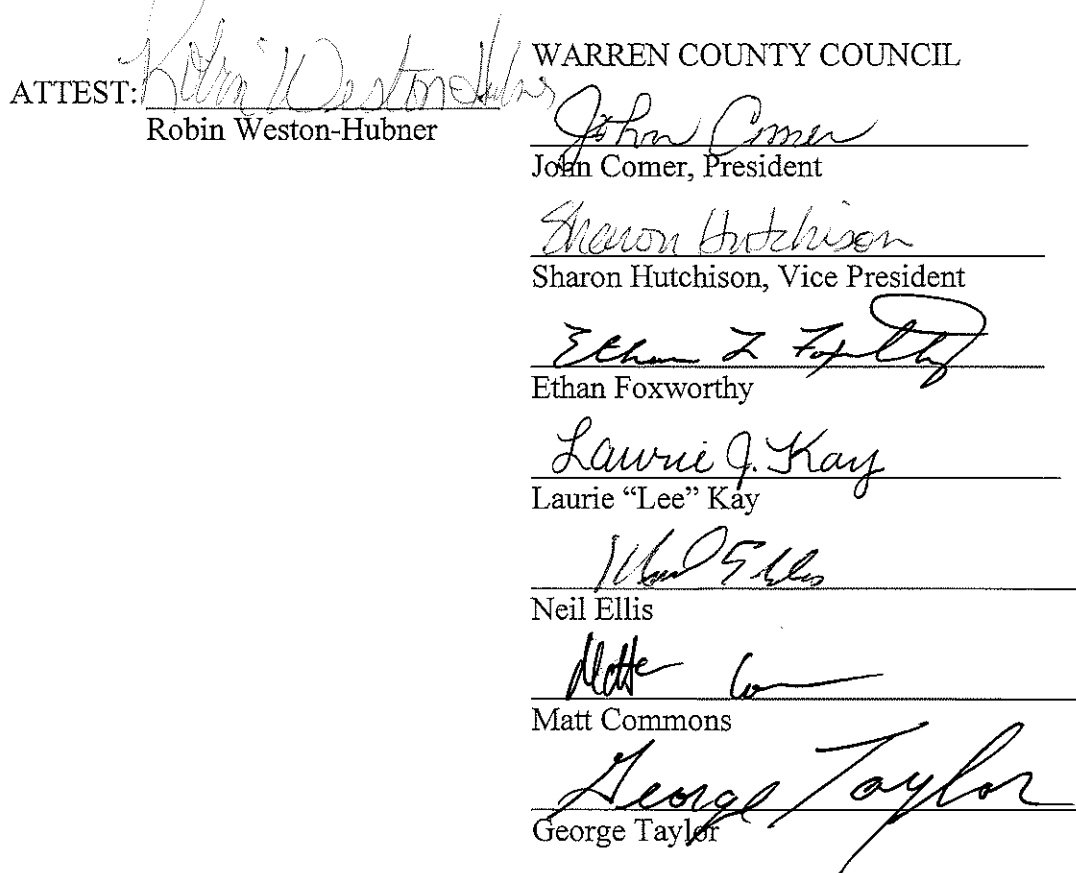 ATTEST: Robin Weston-Hubner
Robin Weston-Hubner
WARREN COUNTY COUNCIL
John Comer
John Comer, President
Sharon Hutchison
Sharon Hutchison, Vice President
Ethan L Foxworthy
Ethan Foxworthy
Laurie J. Kay
Laurie “Lee” Kay
Neil Ellis
Matt Commons
George Taylor
George Taylor